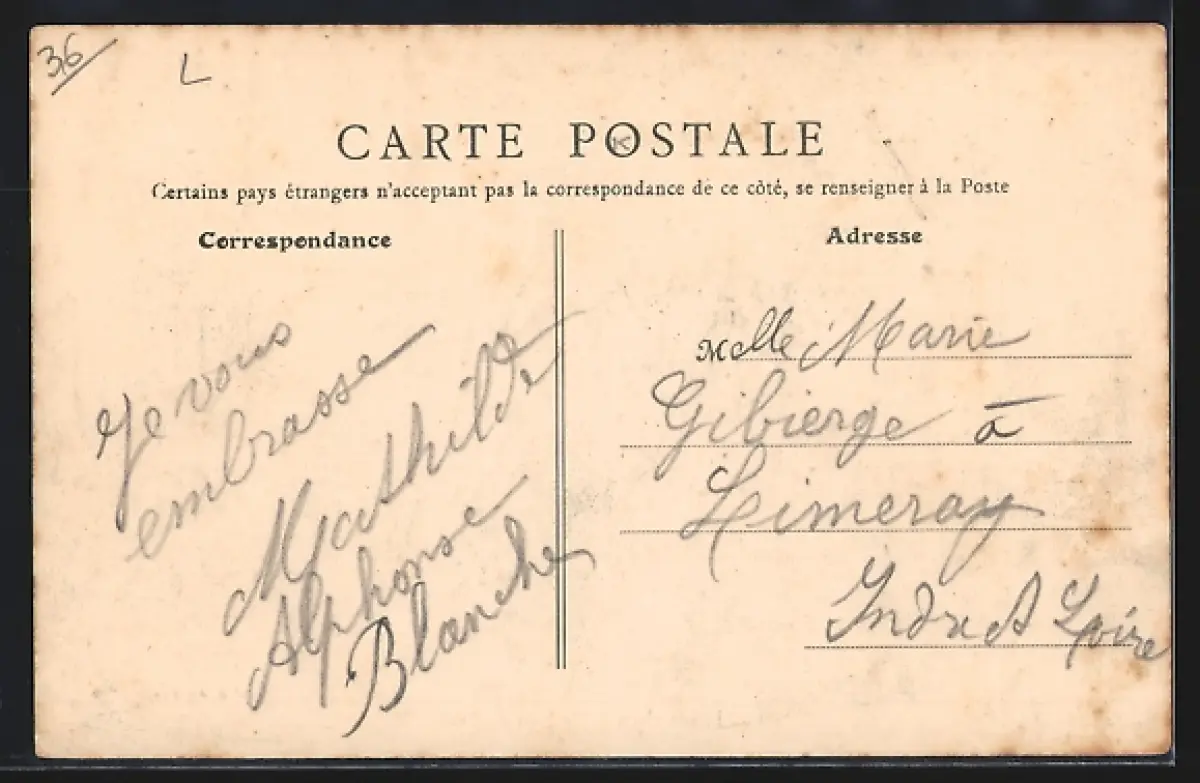 36
L
CARTE POSTALE
Certains pays étrangers n'acceptant pas la correspondance de ce côté, se renseigner à la Poste
Correspondance
Je vous
embrasse
Mathilde
Alphonse
Blanche
Adresse
Melle Marie
Gibierge à
Limeray
Indre et Loire